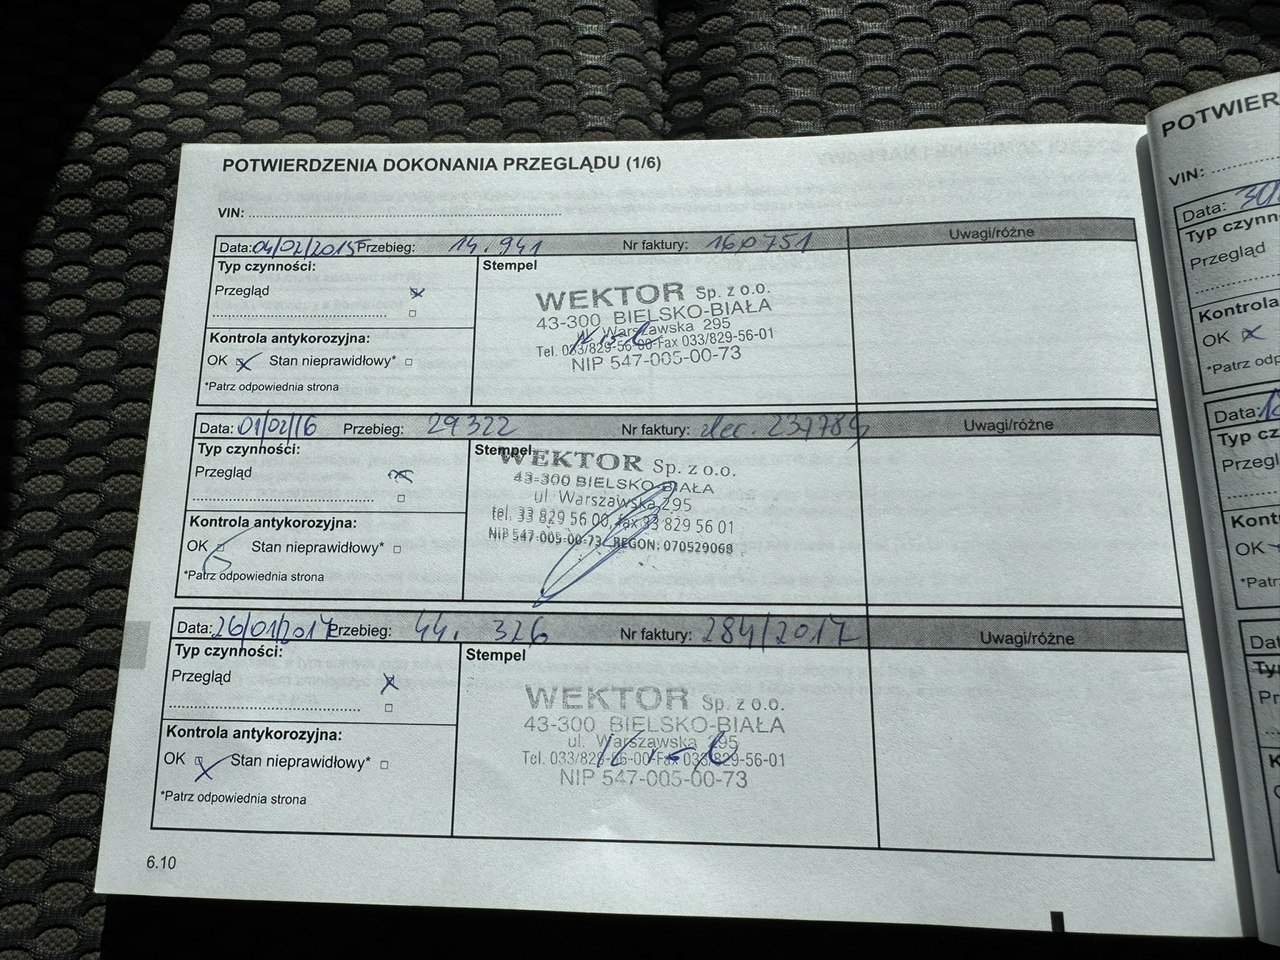 POTWIERDZENIA DOKONANIA PRZEGLĄDU (1/6)
VIN:
Data: 04/02/2015 Przebieg: 14.941 Nr faktury: 160751 Uwagi/różne
Typ czynności:
Stempel
Przegląd
WEKTOR Sp. z o.o.
43-300 BIELSKO-BIAŁA
ul. Warszawska 295
Tel. 033/829-56-00 Fax 033/829-56-01
NIP 547-005-00-73
Kontrola antykorozyjna:
OK Stan nieprawidłowy*
*Patrz odpowiednia strona
Data: 01/02/16 Przebieg: 29322 Nr faktury: zlec. 237789 Uwagi/różne
Typ czynności:
Stempel
Przegląd
WEKTOR Sp. z o.o.
43-300 BIELSKO-BIAŁA
ul Warszawska 295
tel. 33 829 56 00, fax 33 829 56 01
NIP 547-005-00-73/ REGON: 070529068
Kontrola antykorozyjna:
OK Stan nieprawidłowy*
*Patrz odpowiednia strona
Data: 26/01/2017 Przebieg: 44. 326 Nr faktury: 284/2017 Uwagi/różne
Typ czynności:
Stempel
Przegląd
WEKTOR Sp. z o.o.
43-300 BIELSKO-BIAŁA
ul. Warszawska 295
Tel. 033/829-56-00 Fax 033/829-56-01
NIP 547-005-00-73
Kontrola antykorozyjna:
OK Stan nieprawidłowy*
*Patrz odpowiednia strona
6.10
POTWIER
VIN:
Data: 30
Typ czynn
Przegląd
Kontrola
OK
*Patrz odp
Data:
Typ cz
Przegl
Kont
OK
*Patr
Da
Ty
Pr
K